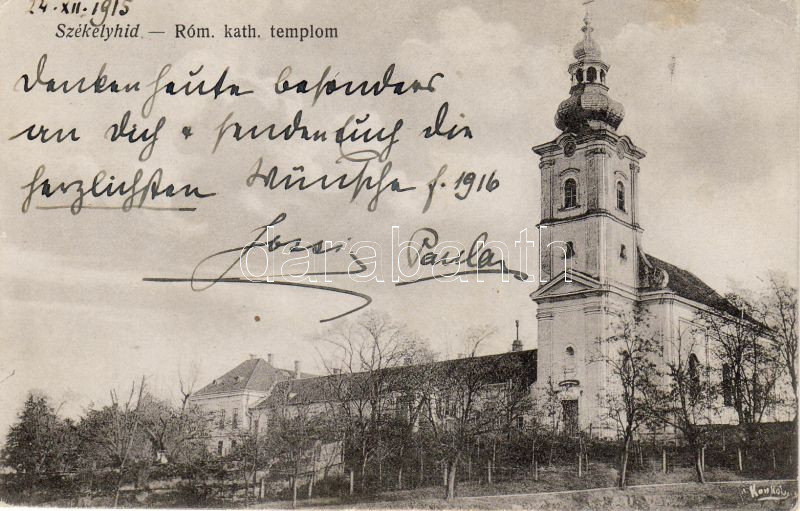 24. XII. 1915
Székelyhid — Róm. kath. templom
Denken heute besonders
an Dich & senden Euch die
herzlichsten Wünsche f. 1916
Joszi Paula
darabanth